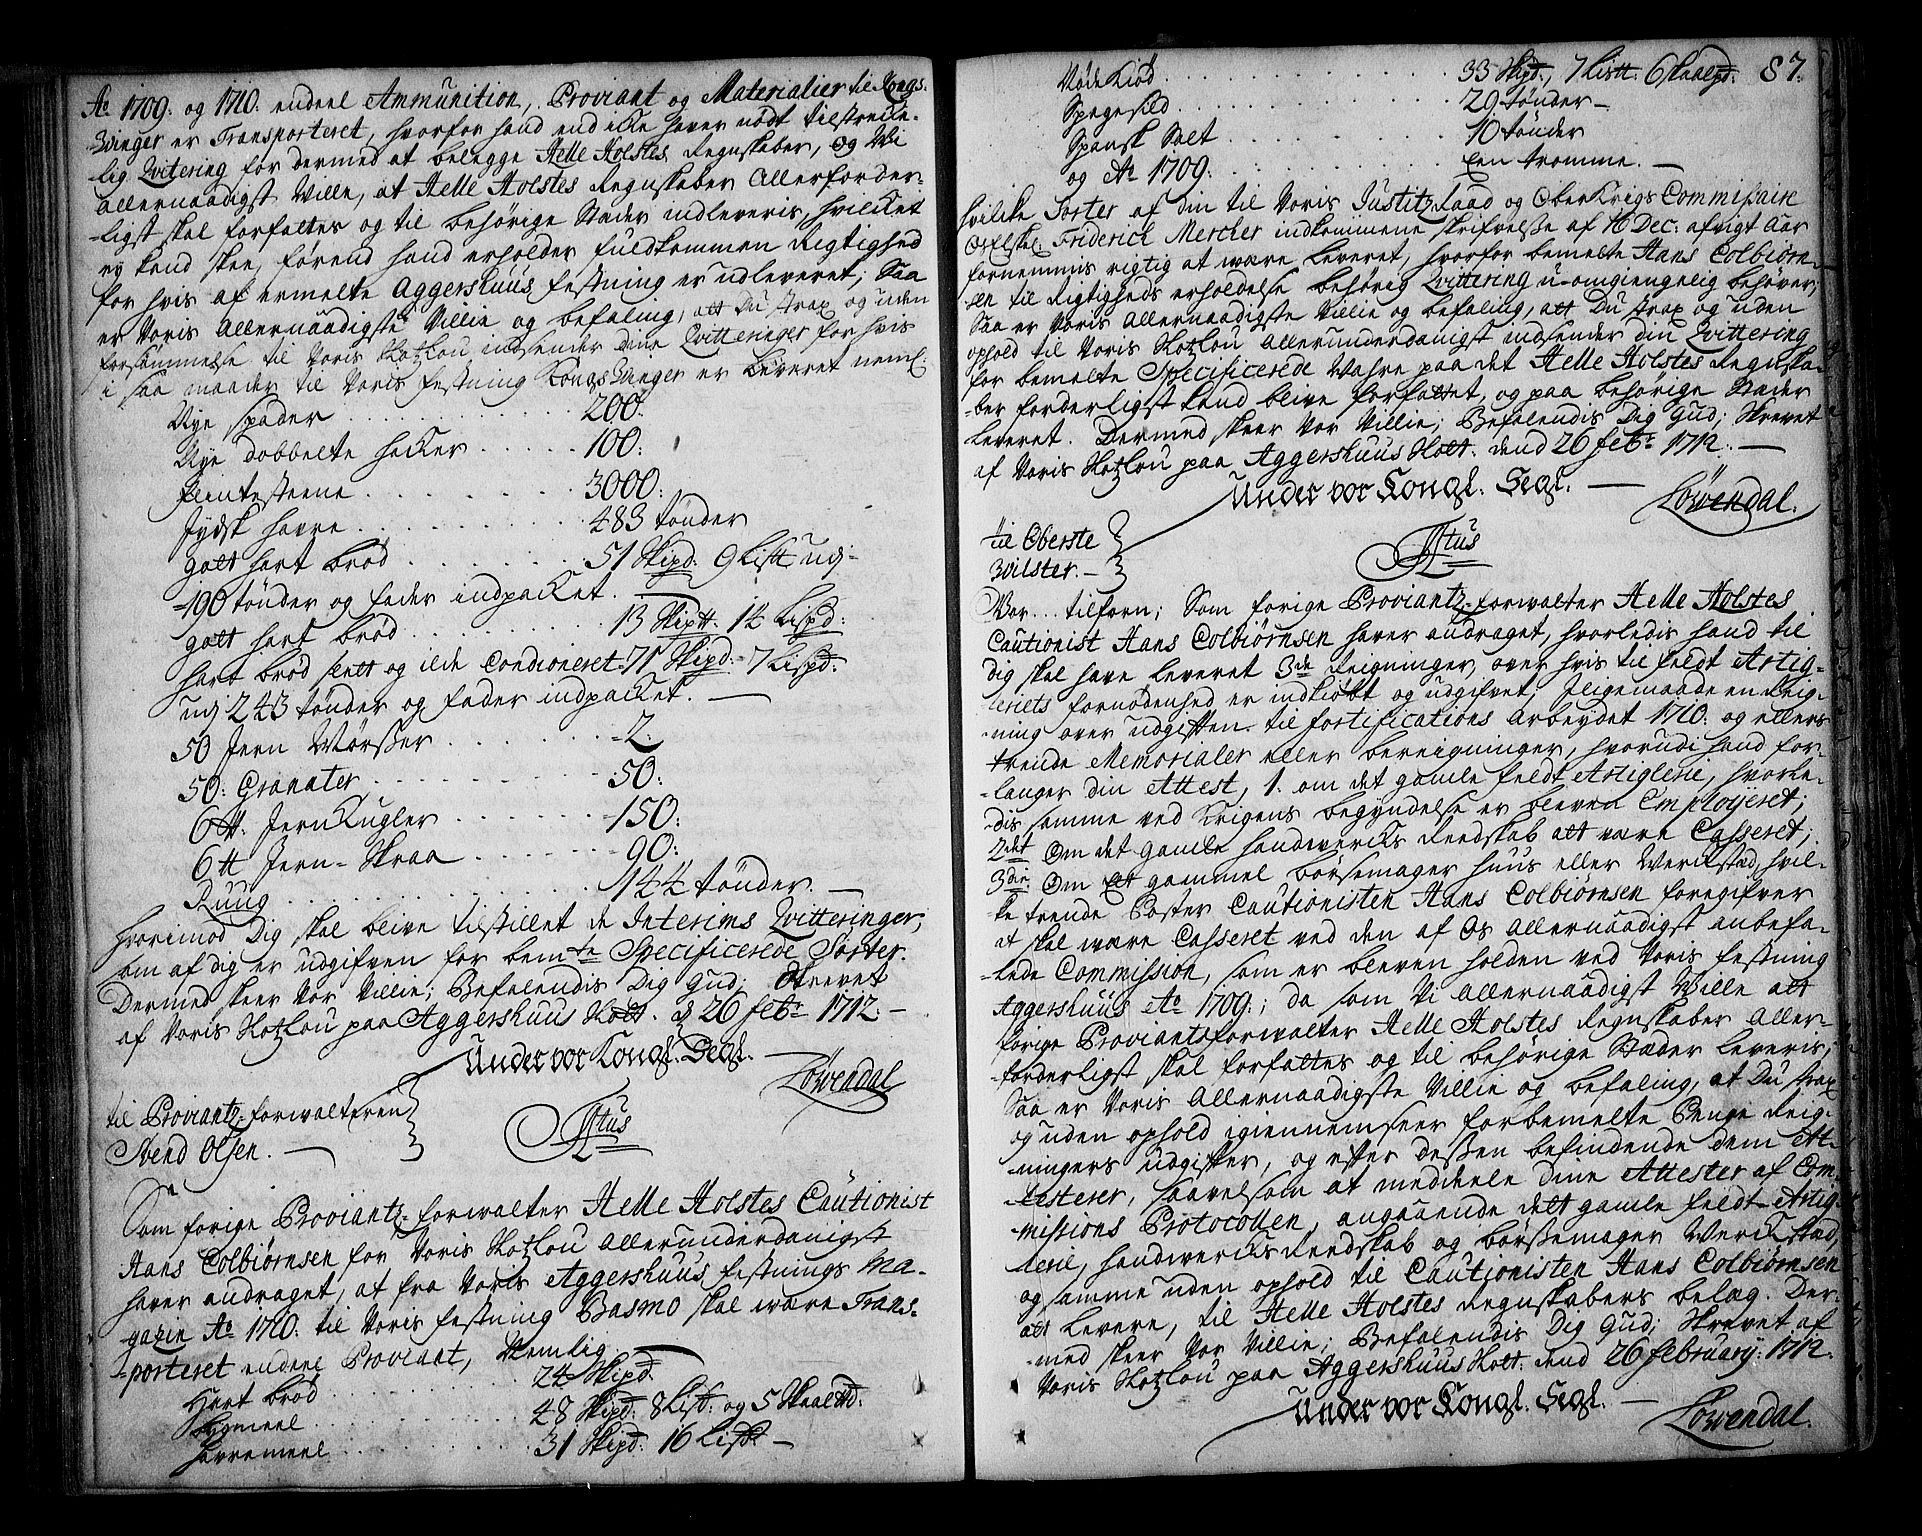 Ao 1709. og 1710. endeel Ammunition, Proviant og Materialier til Kongs-
Winger er Transporteret, hvorfor hand end ikke haver nødt tilstrecke-
-lig Qvitering for dermed at belegge Helle Holstes Regnskaber, og Wi
allernaadigst Wille, at Helle Holstes Regnskaber Allerforder-
-ligst skal forfattes og til behørige Stæder indleveris, hvilcket
ey kand skee, førend hand erholder fuldkommen Rigtighed
for hvis af ermelte Aggershuus festning er udleveret; Saa
er Voris allernaadigste Villie og befaling, att Du strax og uden
forsømmelse til Voris Slotzlou indsender dine Qvitteringer for hvis
i saa maader til Voris festning KongsWinger er leveret neml:
Nye spader . . . . . 200:
Nye dobbelte hacker . . . . . 100:
. . . . . 3000:
Jydsk havre . . . . . 483 tønder
gott hart brød . . . . . 51 Skipd. 9 Lis℔ udj
-190 tønder og fader indpacket.
gott hart brød . . . . . 13 Skip℔. 14 Lispd:
hart brød slett og ilde Condioneret 71 Skipd. 7 Lispd.
udj 243 tønder og fader indpacket.
50 Jern Mørsser . . . . . -2:
50: Granater . . . . . 50:
6℔. Jern Kugler . . . . . -150:
6℔ Jern-Skraa . . . . . -90:
Ruug . . . . . 144 tønder.
hvorimod Dig skal blive tilstillet de Interims Qvitteringer,
som af dig er udgifven for bemte Specificerede Sorter.
Dermed skeer Vor Villie; Befalendis Dig Gud; Skrevet
af Voris Slotzlou paa Aggershuus Slott. d 26 febr 1712.
Under vor Kongl. Segl.
Løwendal
til Proviantz-forwalteren
Svend Olsen.
IStus
Som forige Proviantz-forwalter Helle Holstes Cautionist
Hans Colbiørnsen for Voris Slotzlou allerunderdanigst
haver andraget, at fra Voris Aggershuus festnings Ma-
gazin Ao 1710. til Voris festning Basmo skal wære Trans-
-porteret endeel Proviant, Nemlig
Hart brød . . . . . 24 Skipd.
Rugmeel . . . . . 48 Skipd: 8 Lis℔: og 5 Skaal℔d:
Havremeel . . . . . 31 Skipd. 16 Lis℔
87.
Røde Kiød . . . . . 33 Skipd., 7 Lis℔. 6 skaalpd.
Spegesild . . . . . 29 tønder
Spansk Salt . . . . . 10 tønder
og Ao 1709. . . . . . Een tromme.
hvilcke Sorter af din til Voris JustitzRaad og OberKrigs Commissair
Friderich Mercker indkommene skrifvelse af 16 Dec: afvigt Aar
fornemmis rigtig at wære leveret, hvorfor bemelte Hans Colbiørn-
-sen til Rigtigheds erholdelse behørig Qvittering u-omgiengelig behøver;
Saa er Voris allernaadigste Villie og befaling, att Du strax og uden
ophold til Voris Slotzlou allerunderdanigst indsender din Qvittering
for bemelte Specificerede Wahre paa det Helle Holstes Regnska-
-ber forderligst kand blive forfattet, og paa behørige Stæder
leveret. Dermed skeer Vor Villie; Befalendis Dig Gud; Skrevet
af Voris Slotzlou paa Aggershuus Slott. dend 26 febr 1712.
Under vor Kongl. Segl.
Løwendal.
til Oberste
Zvilster.
IStus
Vor... tilforn; Som forige Proviantz-forwalter Helle Holstes
Cautionist Hans Colbiørnsen haver andraget, hvorledis hand til
dig skal have leveret 3de Reigninger, over hvis til feldt Artig-
leriets fornødenhed er indkiøbt og udgifvet; Jligemaade en Reig-
-ning over udgiften til fortifications arbeydet 1710. og ellers
trende Memorialer eller bereigninger, hvorudi hand for-
-langer din Attest, 1. om det gamle feldt Artiglerie, hvorle-
-dis samme ved Krigens begyndelse er bleven Employeret;
2det Om det gamle handvercks Reedskab att være Casseret;
3die Om et gammel børsemager huus eller Werckstæd, hvil-
-ke trende Poster Cautionisten Hans Colbiørnsen foregifver
at skal wære Casseret ved den af Os allernaadigst anbefa-
-lede Commission, som er bleven holden ved Voris festning
Aggershuus Ao 1709.; da som Vi allernaadigst Wille att
forige Proviantsforwalter Helle Holstes Regnskaber aller-
-forderligst skal forfattes og til behørige Stæder leveris;
Saa er Voris allernaadigste Villie og befaling, at Du strax
og uden ophold igiennemseer forbemelte Penge Reig-
-ningers udgifter, og efter dessen befindende dem At-
-testerer, saavelsom at meddeele dine Attester af Com-
-missions Protocollen, angaaende dett gamle feldt-Artig-
lerie, handwercks Reedskab og børssemager Werckstæd,
og samme uden ophold til Cautionisten Hans Colbiørnsen
att levere, til Helle Holstes Regnskabers belæg. Der-
-med skeer Vor Villie; Befalendis Dig Gud; Skrevet af
Voris Slotzlou paa Aggershuus Slott. dend 26 february. 1712.
Under vor Kongl. Segl.
Løwendal.